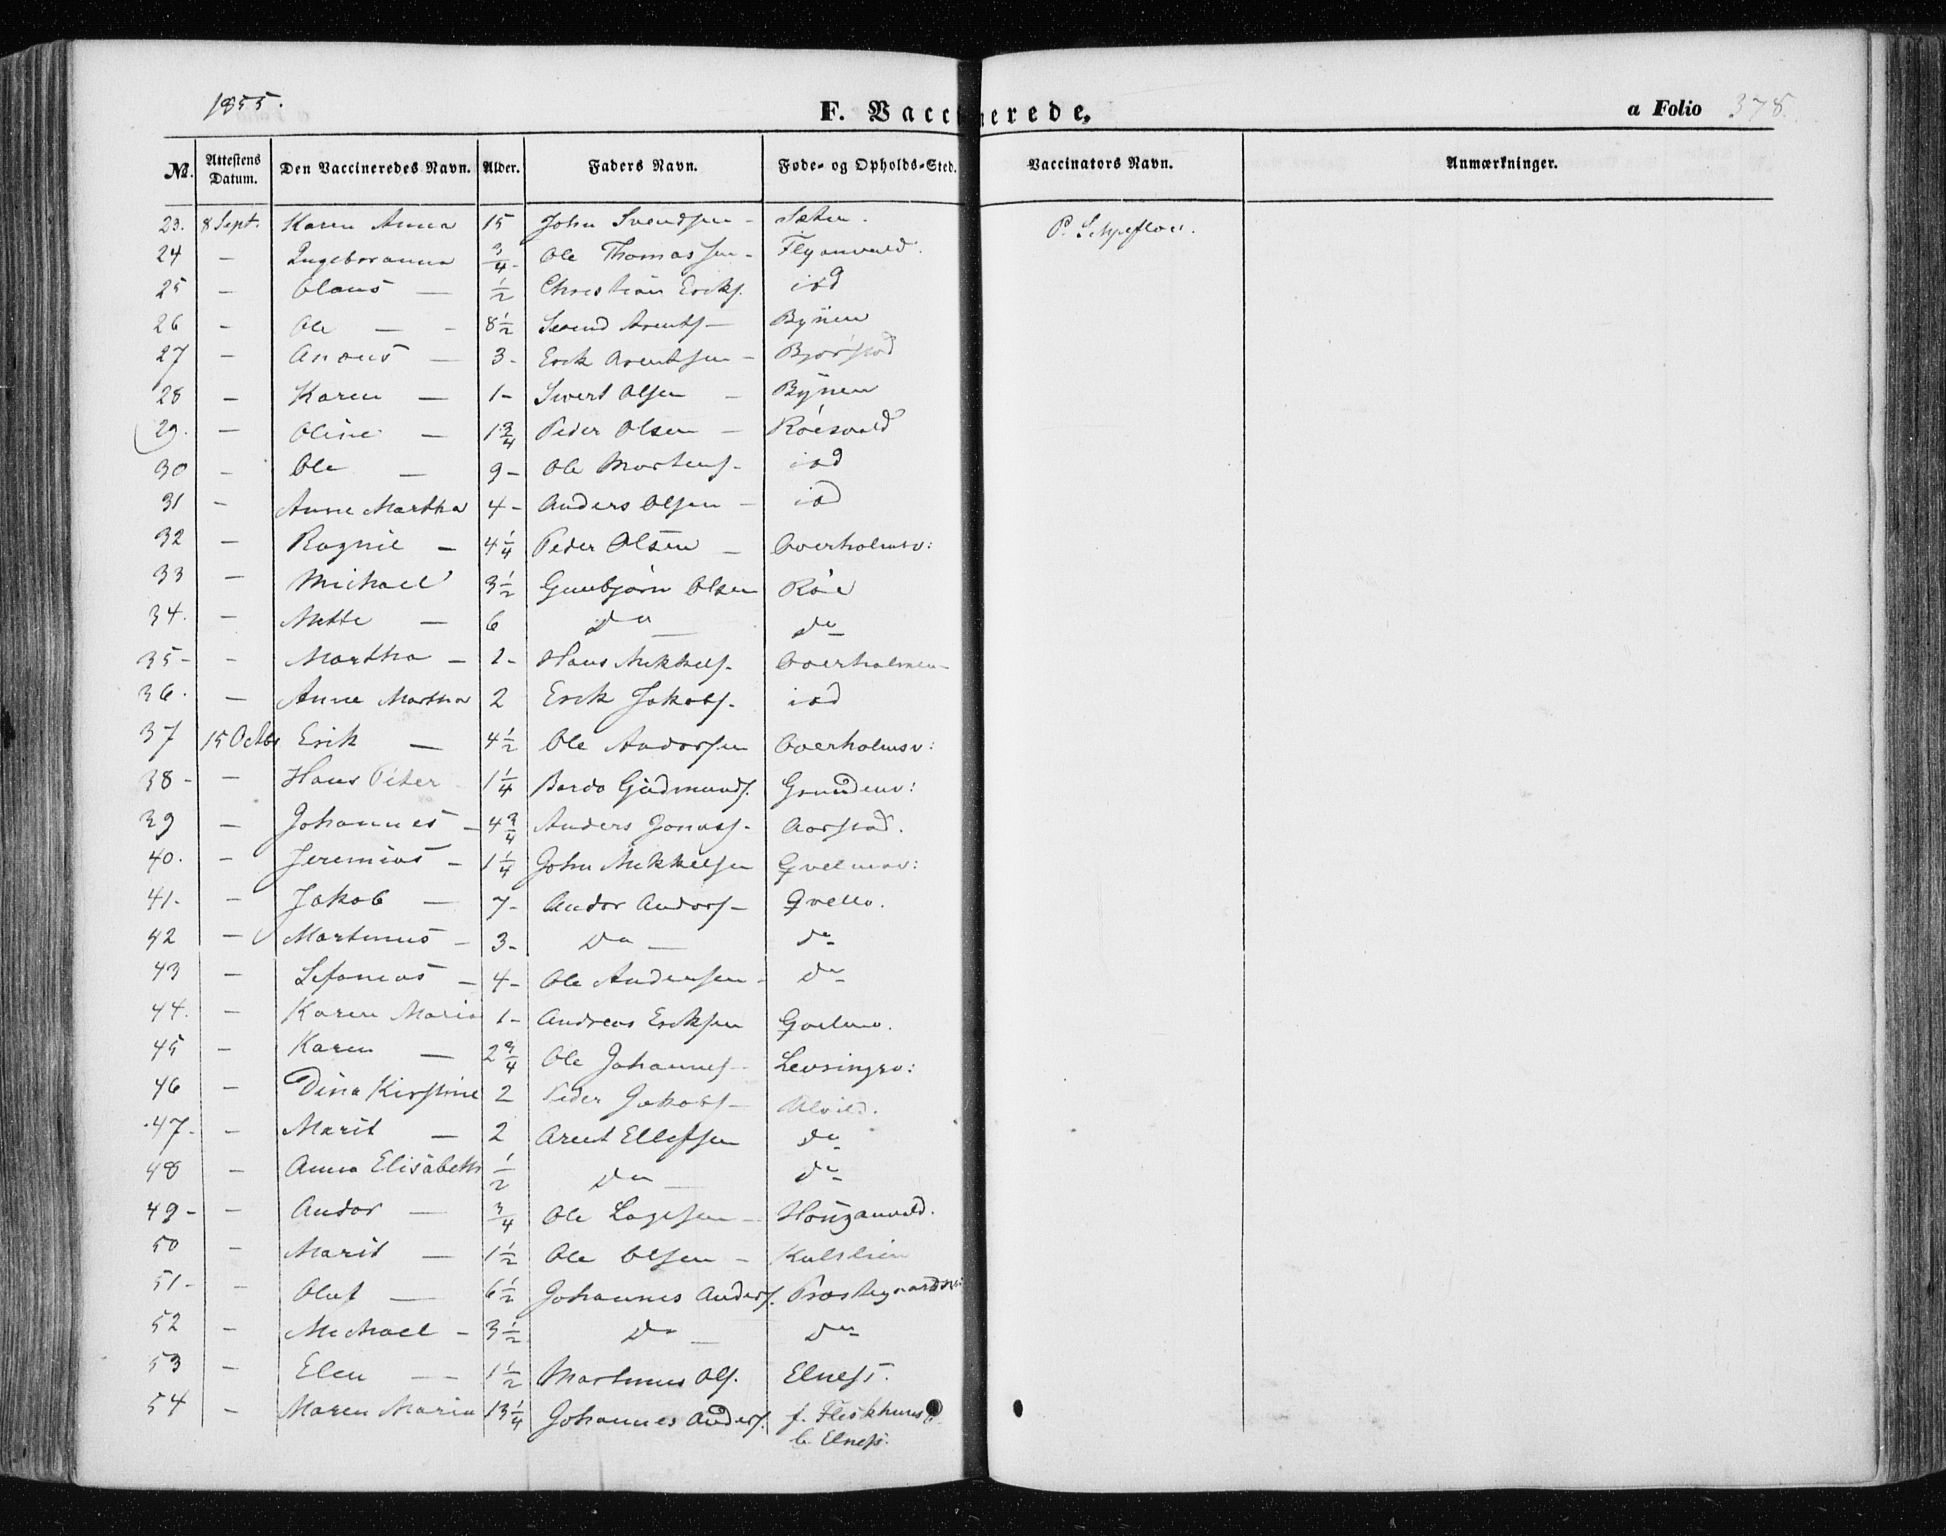 1855.
F. Vaccinerede,
a Folio 378.
No. Attestens Datum. Den Vaccineredes Navn. Alder. Faders Navn. Føde- og Opholds-Sted. Vaccinators Navn. Anmærkninger.
23. 8 Sept. Karen Anna 15 John Svendsen - Sæter. P.
24 - Ingeboranna 3/4 - Ole Thomassen - Flyanvald.
25 - Olaus — 1/2 Christian Eriks. iod
26 - Ole — - 8 1/2 Svend Arents - Bynen
27 - Anaus — 3 - Erik Arentsen - Bjørstad
28 - Karen — 1 - Sivert Olsen - Bynen
29. - Oline — 1 3/4 Peder Olsen - Röesvald
30 - Ole — 9 - Ole Mortens. - iod
31 - Anne Martha 4 - Anders Olsen - iod
32 - Ragnil — 4 1/4 Peder Olsen - Overholmsv:
33 - Michael 3 1/2 Gunbjörn Olsen Röe
34. - Mette — 6 Do — Do
35 - - Martha - 2 - Hans Mikkels. - Overholmen
36. - Anne Martha 2 Erik Jakobs. - iod
37 15 Octbr Erik — 4 1/2 Ole Andorsen Overholmsv:
38 - - Hans Peter 1 1/4 Bardo Gudmunds. Grundenv:
39 - Johannes - 4 3/4 Anders Jonass. - Aarstad.
40. - Jeremias - 1 1/4 John Mikkelsen Qvelmsv:
41. - Jakob — 7 - Andor Andors - Qvello.
42 - Martinus - 3 - Do — Do
43 - Sefanias - 4 - Ole Andersen - Do
44. - Karen Maria 1 - Andreas Eriksen
45 - Karen — 2 3/4 Ole Johannes - Levringsv:
46 - Dina Kirstine 2 Peder Jakobs - Alvild.
47. - Marit — 2 Arent Ellefsen Do
48 - Anna Elisabeth 1/2 Do — Do
49 - - Andor — 3/4 Ole Lagesen - Hauganvald.
50 - Marit — 1 1/2 Ole Olsen - Kulslien
51 - - Oluf — 6 1/2 Johannes Anders. Præstegaardsv:
52 - Michael - 3 1/2 Do — Do
53 - Elen — 1 1/2 Martinus Ols. Elnes.
54 - Maren Maria 13 1/4 Johannes Anders. f. Fleskhus
b. Elnes.